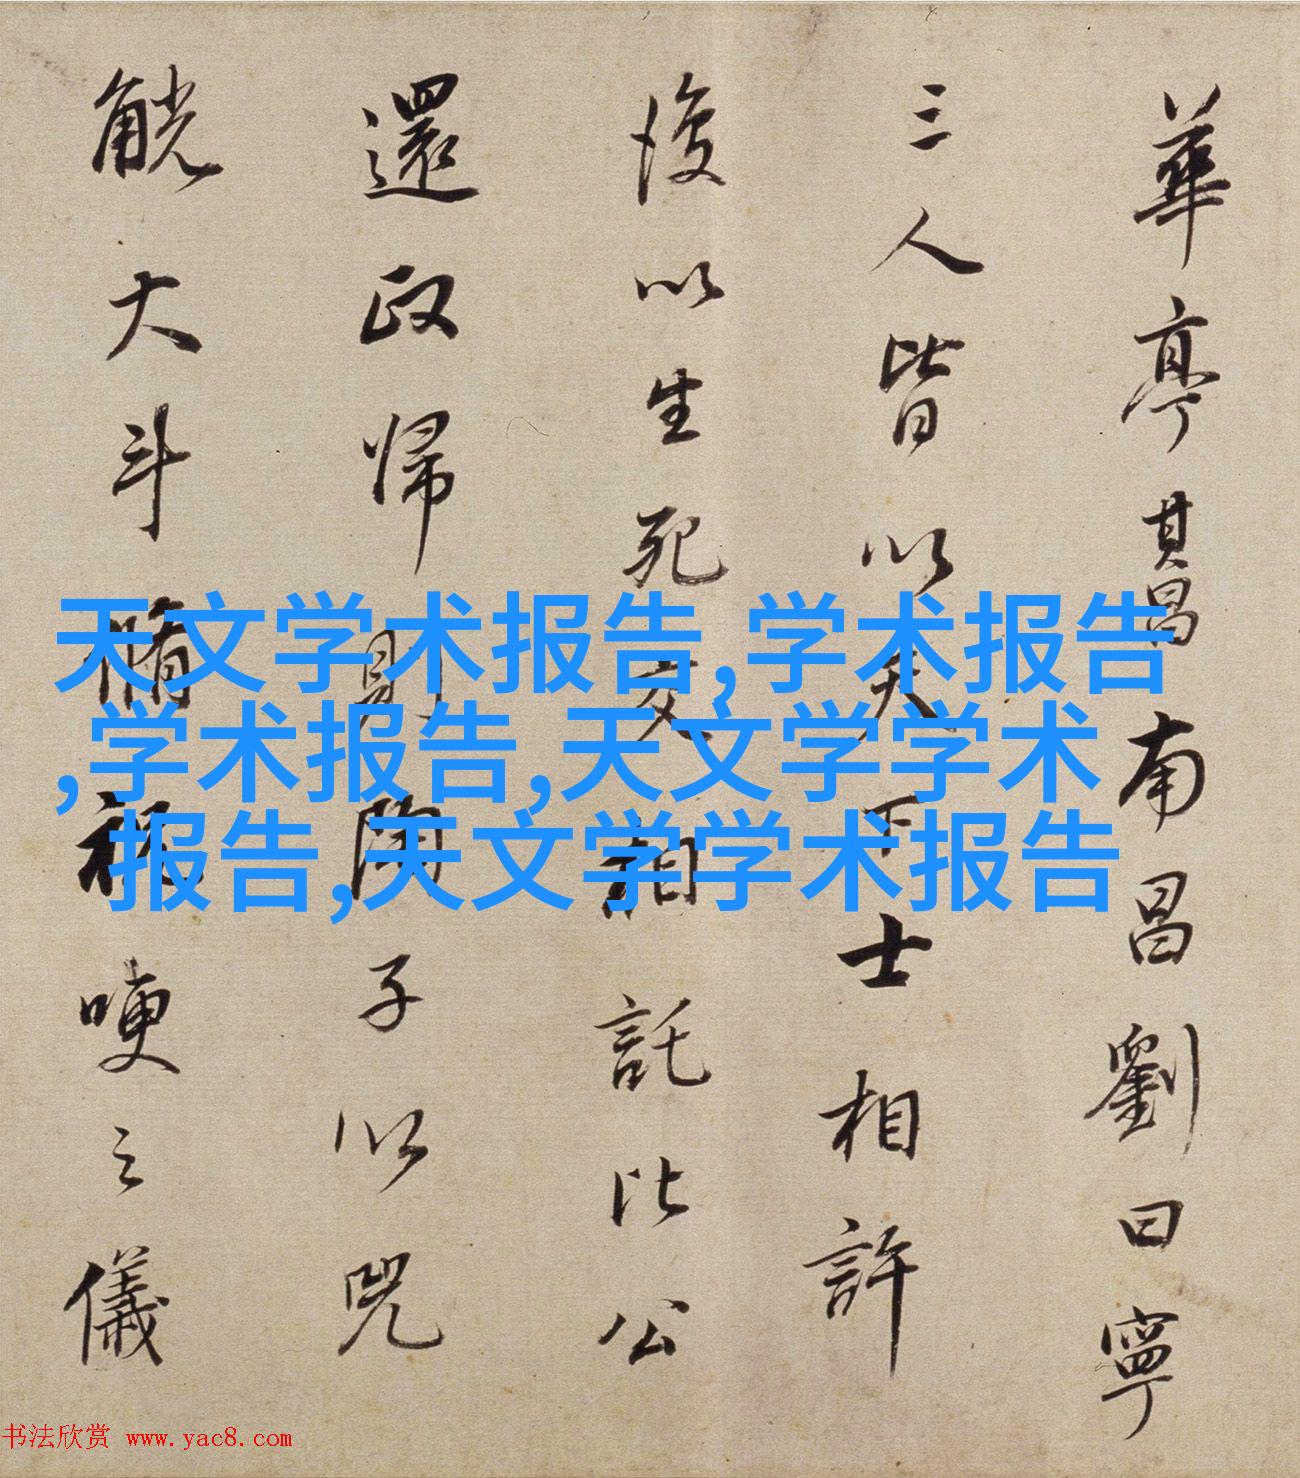 華亭其昌南昌劉曰寧
三人皆以天下士相許
後以生死交相託比公
還政歸則陶子以兕
觥大斗脩祝哽之儀
天文学术报告,学术报告
,学术报告,天文学学术
报告,天文学学术报告
书法欣赏 www.yac8.com